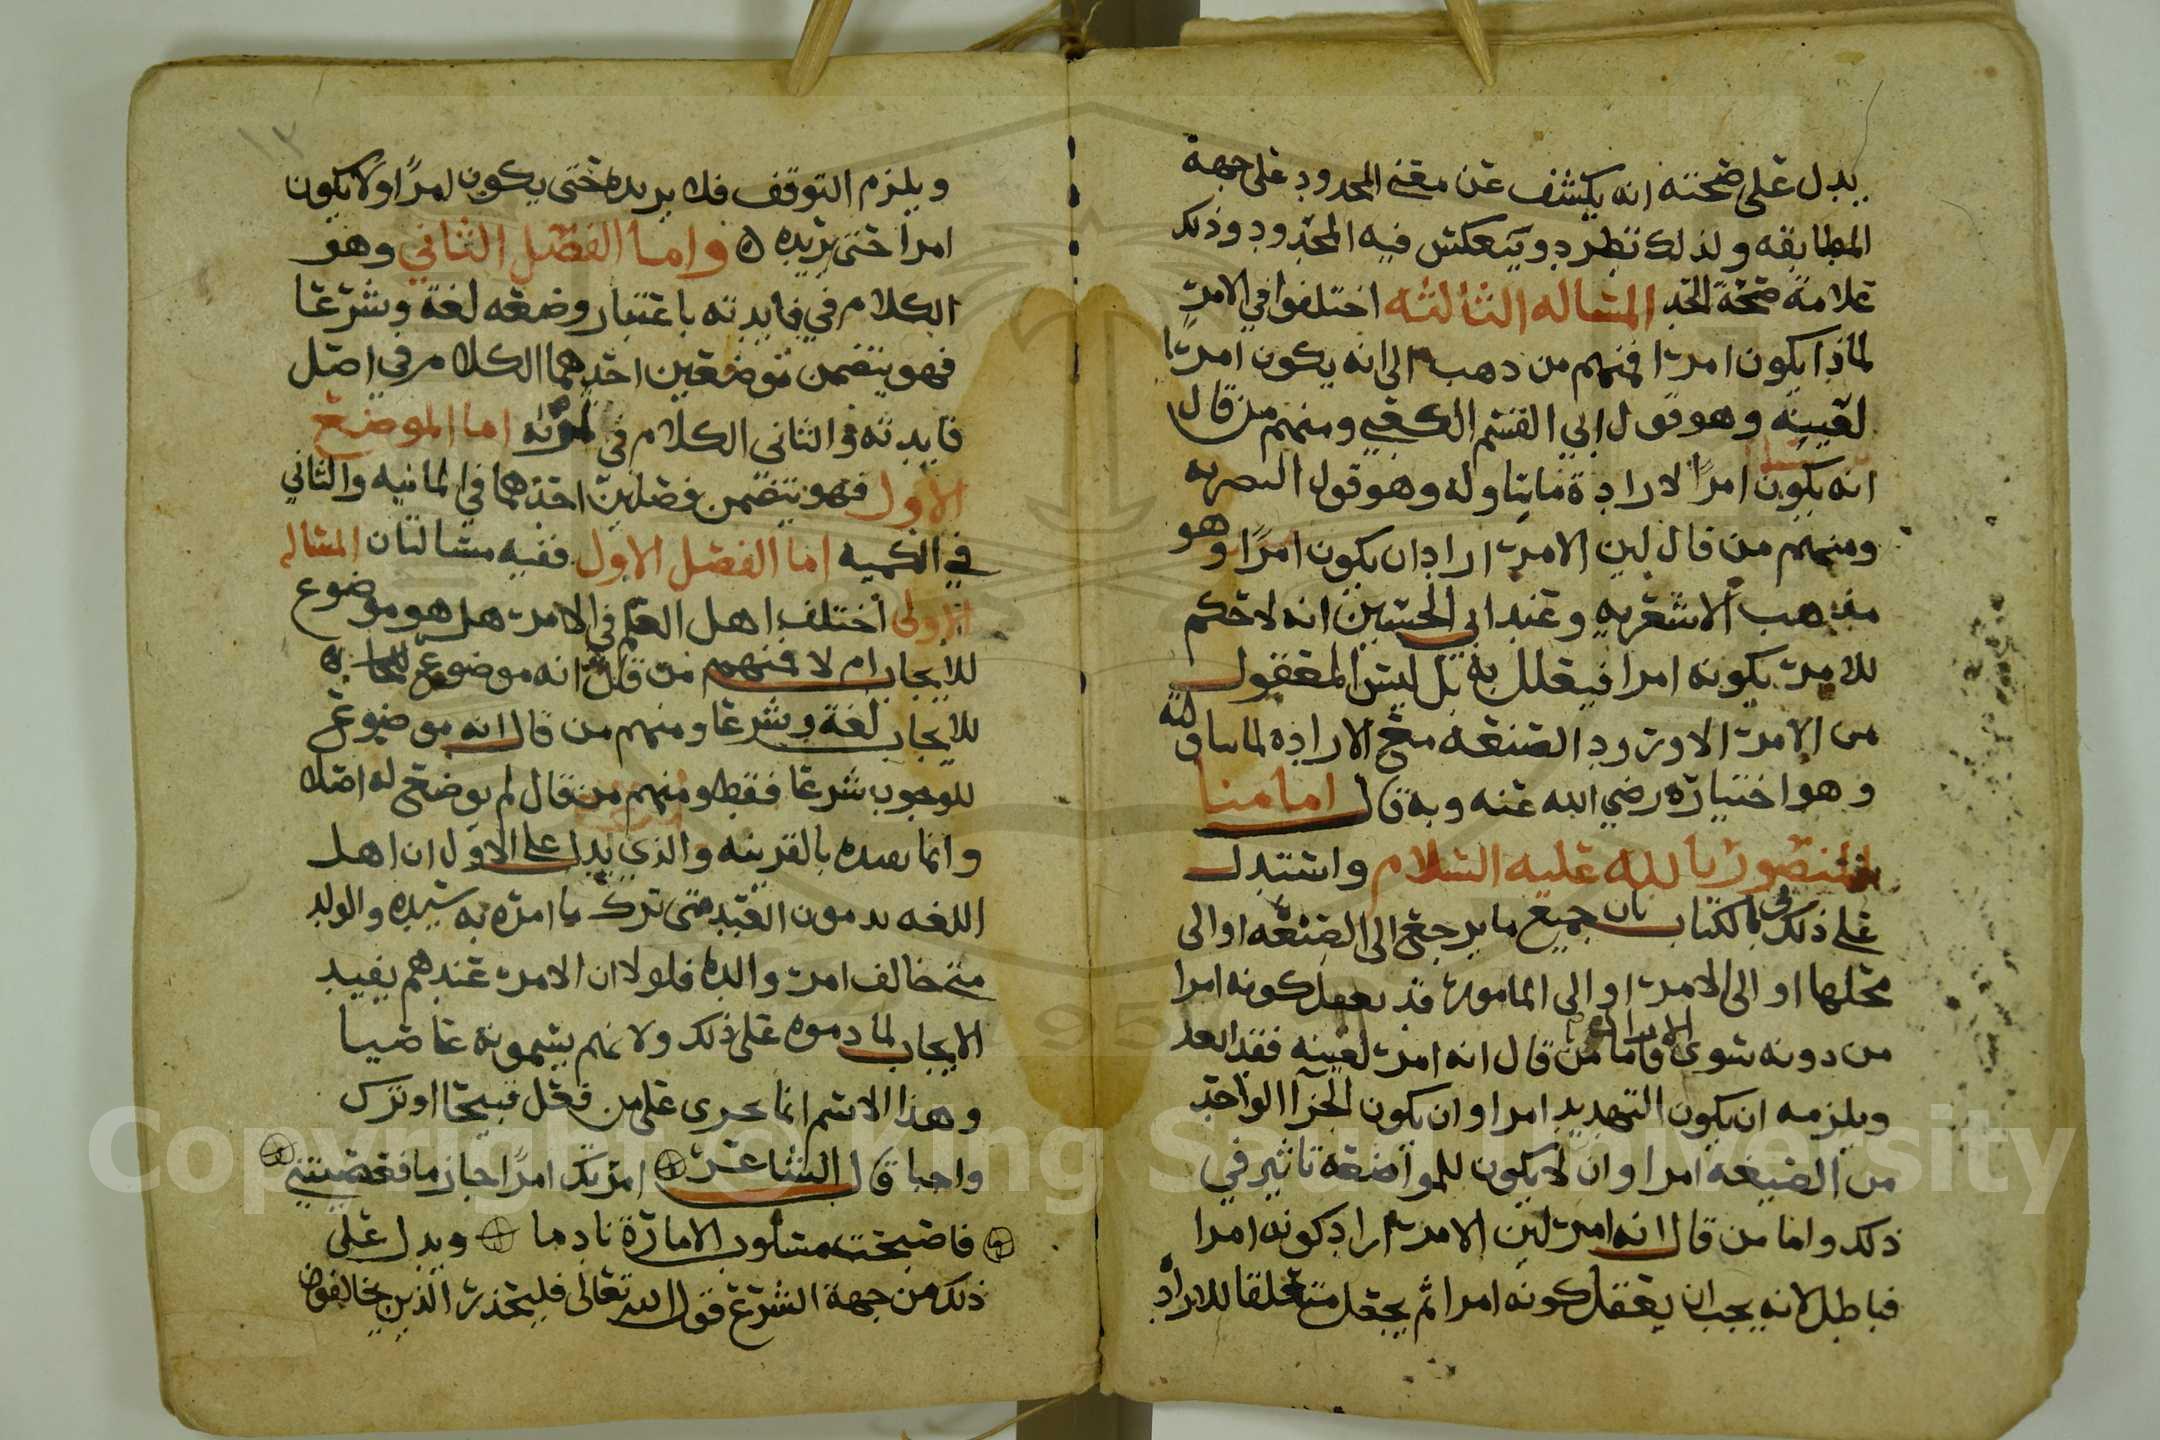 يدل على صحته انه يكشف عن معنى المحدود على جهة
المطابقه ولذلك تطرد وينعكس فيه المحدود وذلك
علامة صحة الحد المساله الثالثه اختلفوا في الامر
لماذا يكون امرا فمنهم من دهب الى انه يكون امرا
لعينه وهو قول ابي القسم الكعبي ومنهم من قال
انه يكون امرًا لارادة ما يتناوله وهو قول البصريه
ومنهم من قال لان الامر اراد ان يكون امرًا وهو
مذهب الاشعريه وعند ابي الحسين انه لا حكم
للامر بكونه امرا فيعلل به بل ليس المعقول
من الامر الا ورود الصيغه مع الاراده لما يتناوله
وهو اختياره رضي الله عنه وبه قال امامنا
المنصور بالله عليه السلام واستدل
على ذلك في الكتاب بان جميع ما يرجع الى الصيغه او الى
محلها او الى الامر او الى المامور قد يعقل كونه امرا
من دونه سوى الارادة فاما من قال انه امر لعينه فقد ابعد
ويلزمه ان يكون التهديد امرا وان يكون الجزا الواحد
من الصيغه امرا وان لا يكون للمواضعة تاثير في
ذلك واما من قال انه امر لان الامر اراد كونه امرا
فباطل لانه يجب ان يعقل كونه امرا ثم يجعل متعلقا للاراد
ويلزم التوقف فلا يريده حتى يكون امرًا ولا يكون
امرا حتى يريده ه واما الفصل الثاني وهو
الكلام في فايدته باعتبار وضعه لغة وشرعا
فهو يتضمن موضعين احدهما الكلام في اصل
فايدته والثاني الكلام في اما الموضع
الاول فهو يتضمن فصلين احدهما في الماهيه والثاني
في الكميه اما الفصل الاول ففيه مسالتان المساله
الاولى اختلف اهل العلم في الامر هل هو موضوع
للايجاب ام لا فمنهم من قال انه موضوع
للايجاب لغة وشرعا ومنهم من قال انه موضوع
للوجوب شرعا فقط ومنهم من قال لم يوضع له اصلا
وانما يفيده بالقرينه والذي يدل على الاول ان اهل
اللغه يذمون العبد متى ترك ما امره به سيده والولد
متى خالف امر والده فلولا ان الامر عندهم يفيد
الايجاب لما دموه على ذلك ولانهم يسمونه عاصيا
وهذا الاسم انما يجرى على من فعل قبيحا او ترك
واجبا قال الشاعر امرتك امرًا جازما فعصيتني
فاصبحت مسلوب الامارة نادما ويدل على
ذلك من جهة الشرع قول الله تعالى فليحذر الذين يخالفون